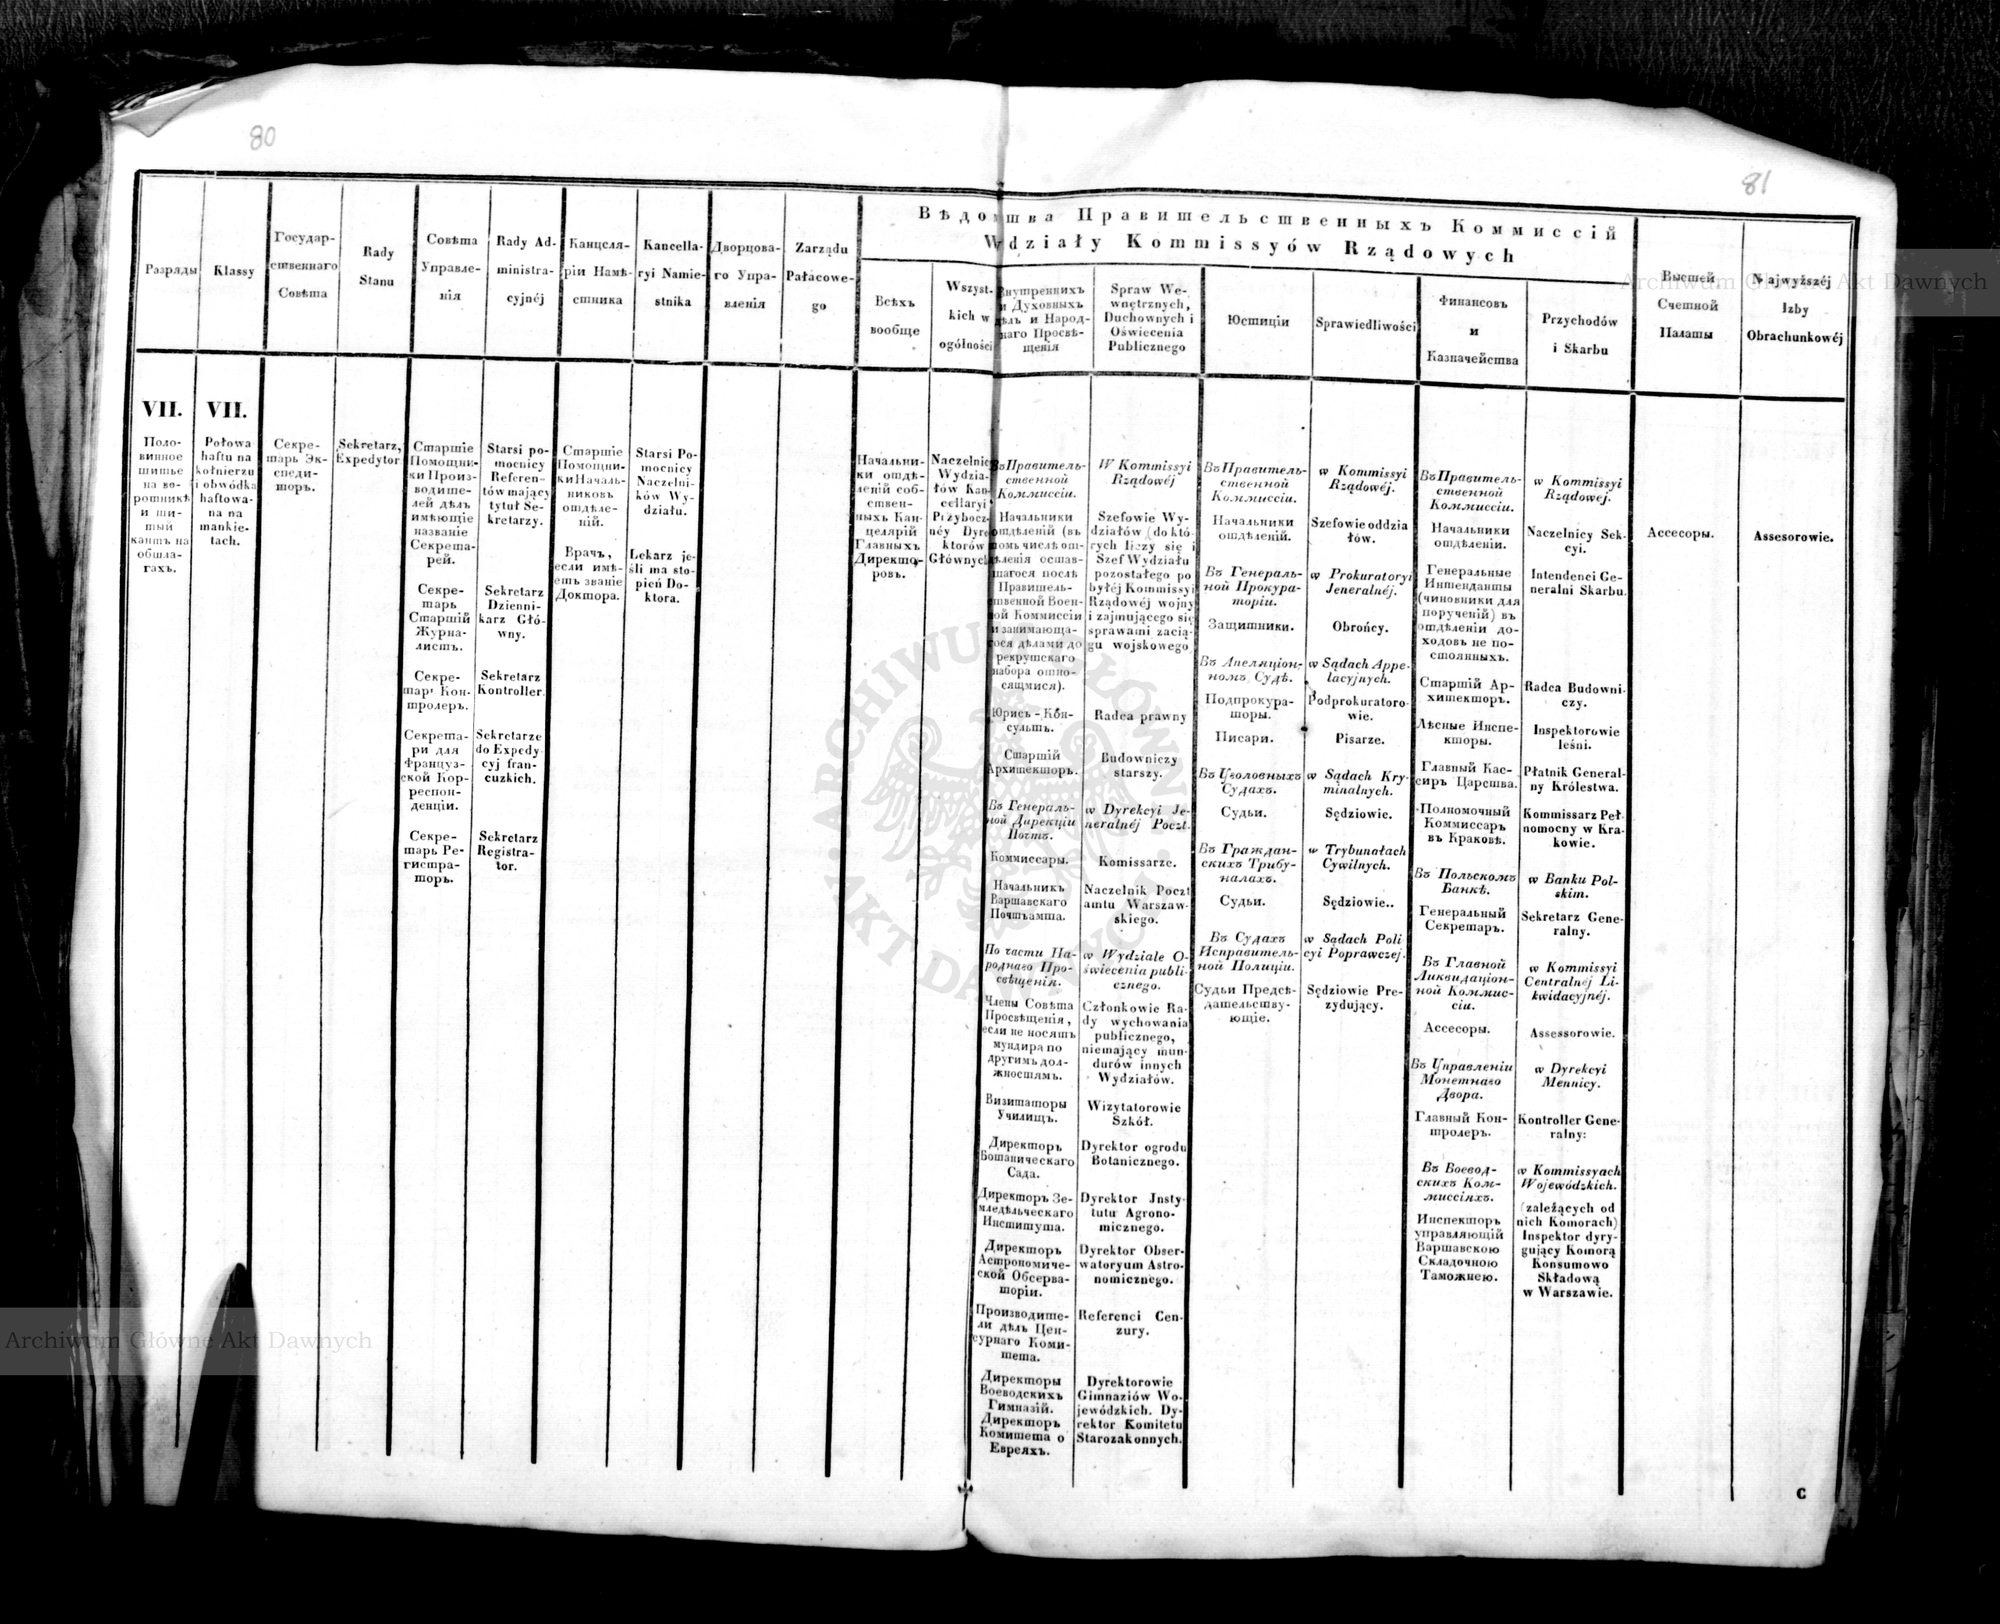 80
81
Вѣдомства Правительственныхъ Коммиссій
Wdziały Kommissyów Rządowych
Разряды
Klassy
Государ-
ственнаго
Совѣта
Rady
Stanu
Совѣта
Управле-
нія
Rady Ad-
ministra-
cyjnéj
Канцеля-
ріи Намѣ-
стника
Kancella-
ryi Namie-
stnika
Дворцова-
го Упра-
вленія
Zarządu
Pałacowe-
go
Всѣхъ
вообще
Wszyst-
kich w
ogólności
Внутреннихъ
и Духовныхъ
дѣлъ и Народ-
наго Просвѣ-
щенія
Spraw We-
wnętrznych,
Duchownych i
Oświecenia
Publicznego
Юстиціи
Sprawiedliwości
Финансовъ
и
Казначейства
Przychodów
i Skarbu
Высшей
Счетной
Палаты
Najwyższéj
Izby
Obrachunkowéj
VII.
Поло-
винное
шитье
на во-
ротникѣ
и ши-
тый
кантъ на
обшла-
гахъ.
VII.
Połowa
haftu na
kołnierzu
i obwódka
haftowa-
na na
mankie-
tach.
Секре-
тарь Эк-
спеди-
торъ.
Sekretarz,
Expedytor
Старшіе
Помощни-
ки Произ-
водите-
лей дѣлъ
имѣющіе
названіе
Секрета-
рей.
Секре-
тарь
Старшій
Журна-
листъ.
Секре-
тарь Кон-
тролеръ.
Секрета-
ри для
Француз-
ской Кор-
респон-
денціи.
Секре-
тарь Ре-
гистра-
торъ.
Starsi po-
mocnicy
Referen-
tów mający
tytuł Se-
kretarzy.
Sekretarz
Dzienni-
karz Głó-
wny.
Sekretarz
Kontroller.
Sekretarze
do Expedy-
cyj fran-
cuzkich.
Sekretarz
Registra-
tor.
Старшіе
Помощни-
ки Началь-
никовъ
отдѣле-
ній.
Врачъ,
если имѣ-
етъ званіе
Доктора.
Starsi Po-
mocnicy
Naczelni-
ków Wy-
działu.
Lekarz je-
śli ma sto-
pień Do-
ktora.
Начальни-
ки отдѣ-
леній соб-
ствен-
ныхъ Кан-
целярій
Главныхъ
Директо-
ровъ.
Naczelnic
Wydzia-
łów Kan-
cellaryi
Przybocz-
néy Dyre
ktorów
Głównych
Въ Правитель-
ственной
Коммиссіи.
Начальники
отдѣленій (въ
томъ числѣ от-
дѣленія остав-
шагося послѣ
Правитель-
ственной Воен-
ной Коммиссіи
и занимающа-
гося дѣлами до
рекрутскаго
набора отно-
сящмися).
Юрисъ-Кон-
сультъ.
Старшій
Архитекторъ.
Въ Генераль-
ной Дирекціи
Почтъ.
Коммиссары.
Начальникъ
Варшавскаго
Почтъамта.
По части На-
роднаго Про-
свѣщенія.
Члены Совѣта
Просвѣщенія,
если не носятъ
мундира по
другимъ дол-
жностямъ.
Визитаторы
Училищъ.
Директоръ
Ботаническаго
Сада.
Директоръ Зе-
мледѣльческаго
Института.
Директоръ
Астрономиче-
ской Обсерва-
торіи.
Производите-
ли дѣлъ Цен-
сурнаго Коми-
тета.
Директоры
Воеводскихъ
Гимназій.
Директоръ
Комитета о
Евреяхъ.
W Kommissyi
Rządowéj
Szefowie Wy-
działów (do któ-
rych liczy się i
Szef Wydziału
pozostałego po
byłéj Kommissyi
Rządowéj wojny
i zajmującego się
sprawami zacią-
gu wojskowego
Radca prawny
Budowniczy
starszy.
w Dyrekcyi Je-
neralnéj Poczt.
Komissarze.
Naczelnik Poczt
amtu Warszaw-
skiego.
w Wydziale O-
świecenia publi-
cznego.
Członkowie Ra-
dy wychowania
publicznego,
niemający mun-
durów innych
Wydziałów.
Wizytatorowie
Szkół.
Dyrektor ogrodu
Botanicznego.
Dyrektor Jnsty-
tutu Agrono-
micznego.
Dyrektor Obser-
watoryum Astro-
nomicznego.
Referenci Cen-
zury.
Dyrektorowie
Gimnaziów Wo-
jewódzkich. Dy-
rektor Komitetu
Starozakonnych.
Въ Правитель-
ственной
Коммиссіи.
Начальники
отдѣленій.
Въ Генераль-
ной Прокура-
торіи.
Защитники.
Въ Апеляціон-
номъ Судѣ.
Подпрокура-
торы.
Писари.
Въ Уголовныхъ
Судахъ.
Судьи.
Въ Граждан-
скихъ Трибу-
налахъ.
Судьи.
Въ Судахъ
Исправитель-
ной Полиціи.
Судьи Предсѣ-
дательству-
ющіе.
w Kommissyi
Rządowéj.
Szefowie oddzia
łów.
w Prokuratoryi
Jeneralnéj.
Obrońcy.
w Sądach Appe-
lacyjnych.
Podprokuratoro-
wie.
Pisarze.
w Sądach Kry-
minalnych.
Sędziowie.
w Trybunałach
Cywilnych.
Sędziowie..
w Sądach Poli
cyi Poprawczej.
Sędziowie Pre-
zydujący.
Въ Правитель-
ственной
Коммиссіи.
Начальники
отдѣленіи.
Генеральные
Интенданты
(чиновники для
порученій) въ
отдѣленіи до-
ходовъ не по-
стоянныхъ.
Старшій Ар-
хитекторъ.
Лѣсные Инспе-
кторы.
Главный Кас-
сиръ Царства.
Полномочный
Коммиссаръ
въ Краковѣ.
Въ Польскомъ
Банкѣ.
Генеральный
Секретарь.
Въ Главной
Ликвидаціон-
ной Коммис-
сіи.
Ассесоры.
Въ Управленіи
Монетнаго
Двора.
Главный Кон-
тролеръ.
Въ Воевод-
скихъ Ком-
миссіяхъ.
Инспекторъ
управляющій
Варшавскою
Складочною
Таможнею.
w Kommissyi
Rządowej.
Naczelnicy Sek-
cyi.
Intendenci Ge-
neralni Skarbu.
Radca Budowni-
czy.
Inspektorowie
leśni.
Płatnik General-
ny Królestwa.
Kommissarz Peł
nomocny w Kra-
kowie.
w Banku Pol-
skim.
Sekretarz Gene-
ralny.
w Kommissyi
Centralnéj Li-
kwidacyjnéj.
Assessorowie.
w Dyrekcyi
Mennicy.
Kontroller Gene-
ralny:
w Kommissyach
Wojewódzkich.
(zależących od
nich Komorach)
Inspektor dyry-
gujący Komorą
Konsumowo
Składową
w Warszawie.
Ассесоры.
Assesorowie.
C
ARCHIWUM GŁÓWNE AKT DAWNYCH
Archiwum Główne Akt Dawnych
Archiwum Główne Akt Dawnych